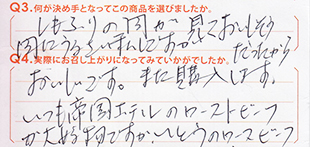 Q3.何が決め手となってこの商品を選びましたか。
しもふりの肉が見ておいしそう
肉にうるさいほんですが
だれからも
Q4.実際にお召し上がりになってみていかがでしたか。
おいしいです。また購入します。
いつも帝国ホテルのローストビーフ
が大好物ですが、いとうのロースビーフ